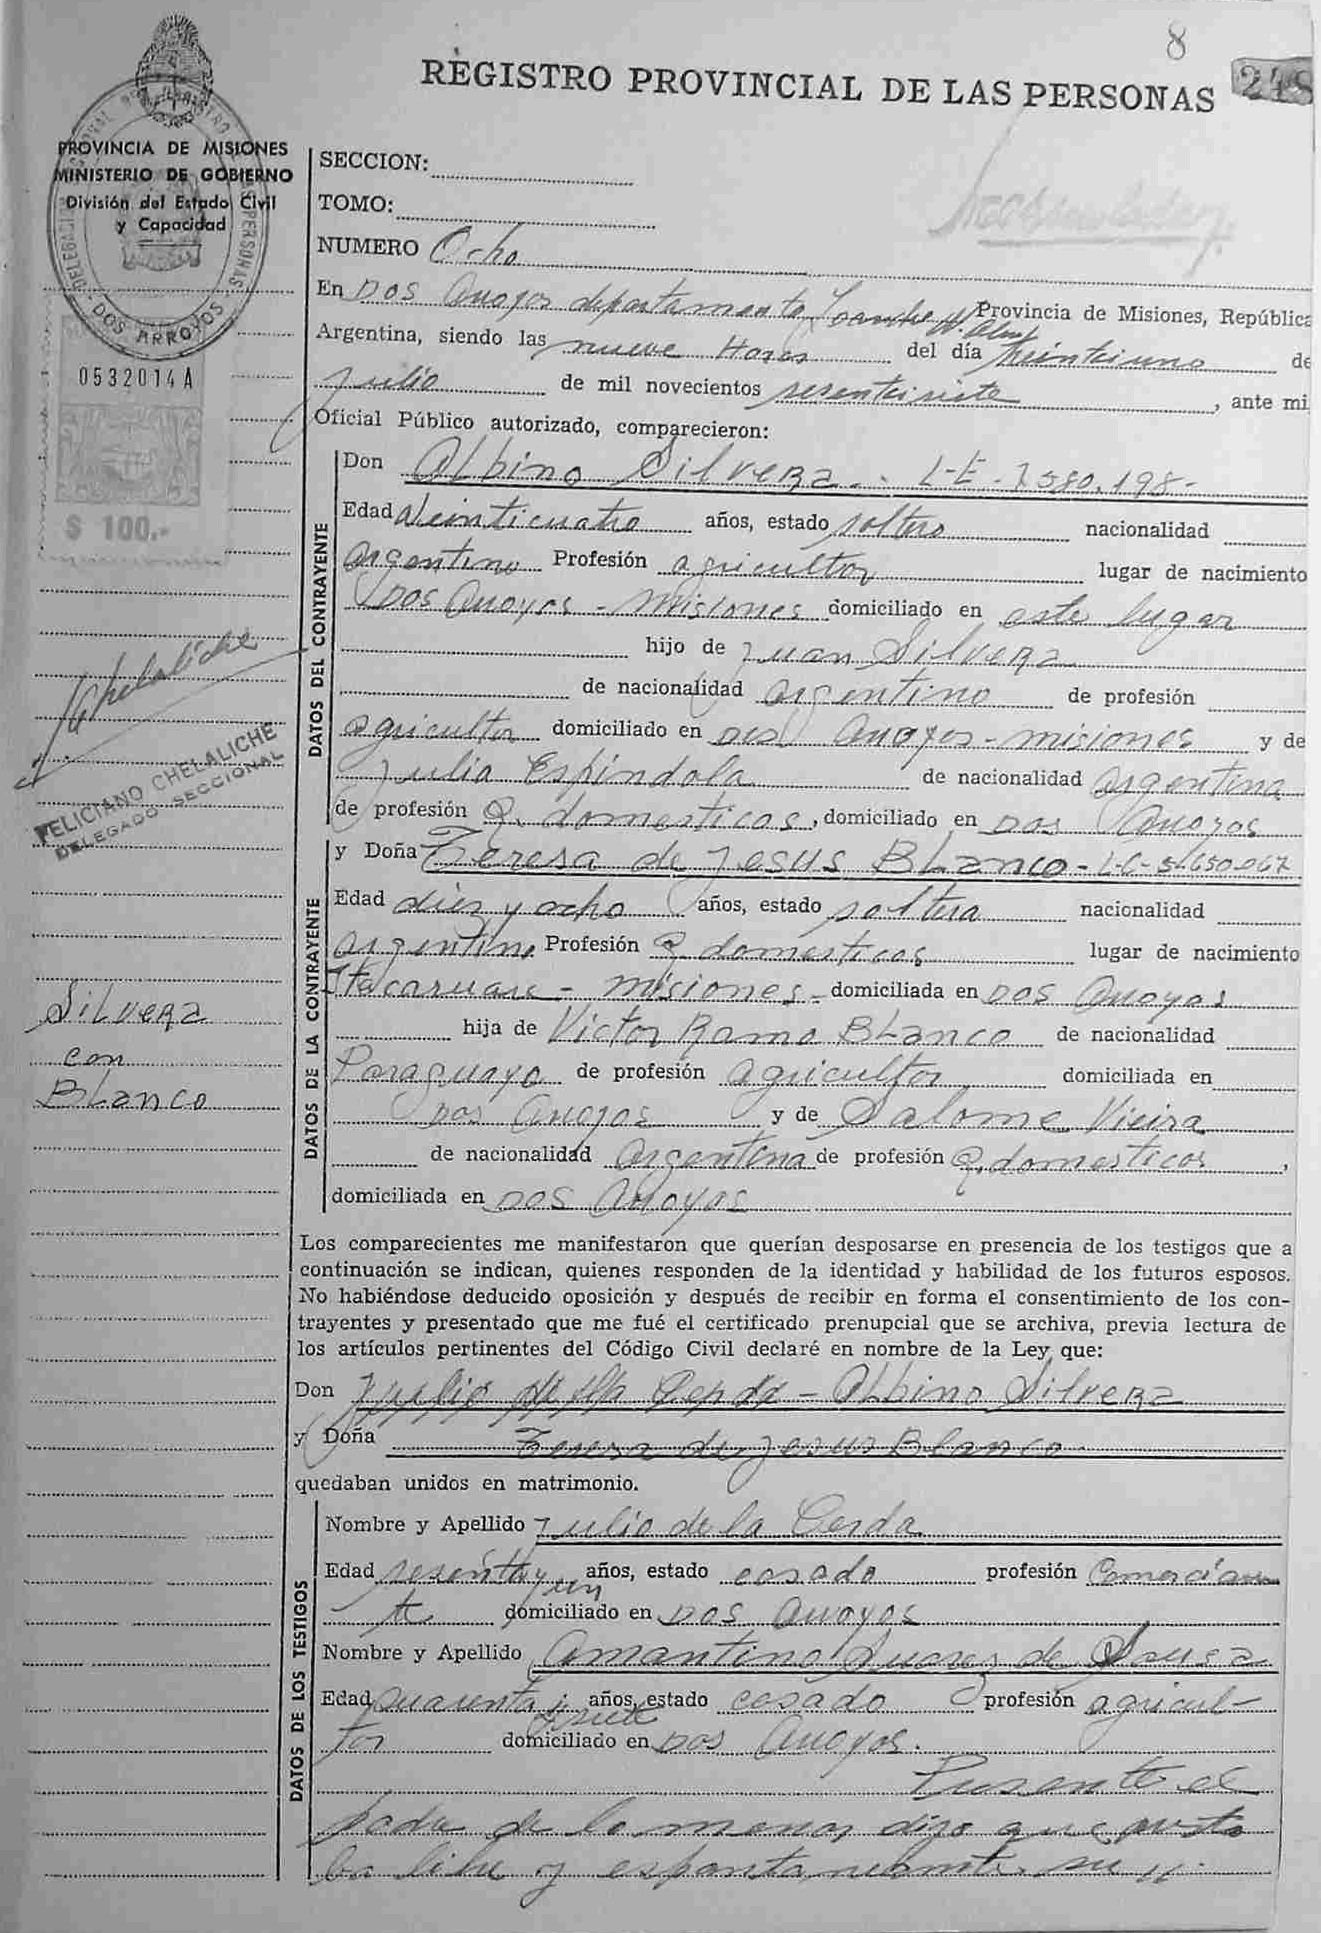 8
REGISTRO PROVINCIAL DE LAS PERSONAS 248
PROVINCIA DE MISIONES
MINISTERIO DE GOBIERNO
División del Estado Civil
y Capacidad
DOS ARROYOS
0532014A
$ 100.-
SECCION:
TOMO:
NUMERO Ocho
En Dos Arroyos departamento Leandro N. Alem Provincia de Misiones, República
Argentina, siendo las nueve Horas del día veintiuno de
julio de mil novecientos sesentaisiete, ante mi
Oficial Público autorizado, comparecieron:
DATOS DEL CONTRAYENTE
Don Albino Silvera.. L-E-7580.198-
Edad Veinticuatro años, estado soltero nacionalidad
argentino Profesión agricultor lugar de nacimiento
Dos Arroyos - Misiones domiciliado en este lugar
hijo de Juan Silvera
de nacionalidad argentino de profesión
agricultor domiciliado en Dos Arroyos - misiones y de
Julia Espindola de nacionalidad argentina
de profesión Q. domesticos, domiciliado en Dos Arroyos
DATOS DE LA CONTRAYENTE
y Doña Teresa de Jesus Blanco - L-C-5.650.067
Edad diez y ocho años, estado soltera nacionalidad
argentina Profesión Q. domesticos lugar de nacimiento
Itacaruare - misiones - domiciliada en Dos Arroyos
hija de Victor Ramo Blanco de nacionalidad
Paraguayo de profesión agricultor domiciliada en
Dos Arroyos y de Salome Vieira
de nacionalidad argentina de profesión Q. domesticos,
domiciliada en Dos Arroyos
Silvera
con
Blanco
FELICIANO CHELALICHE
DELEGADO SECCIONAL
Los comparecientes me manifestaron que querían desposarse en presencia de los testigos que a
continuación se indican, quienes responden de la identidad y habilidad de los futuros esposos.
No habiéndose deducido oposición y después de recibir en forma el consentimiento de los con-
trayentes y presentado que me fué el certificado prenupcial que se archiva, previa lectura de
los artículos pertinentes del Código Civil declaré en nombre de la Ley que:
Don Julio de la Cerda - Albino Silvera
y Doña Teresa de Jesus Blanco
quedaban unidos en matrimonio.
DATOS DE LOS TESTIGOS
Nombre y Apellido Julio de la Cerda
Edad sesenta y un años, estado casado profesión Comercian
te domiciliado en Dos Arroyos
Nombre y Apellido Amantino Suarez de Sousa
Edad cuarenta y siete años, estado casado profesión agricul-
tor domiciliado en Dos Arroyos.
Presente el
padre de la menor dijo que presta
ba libre y espontaneamente su